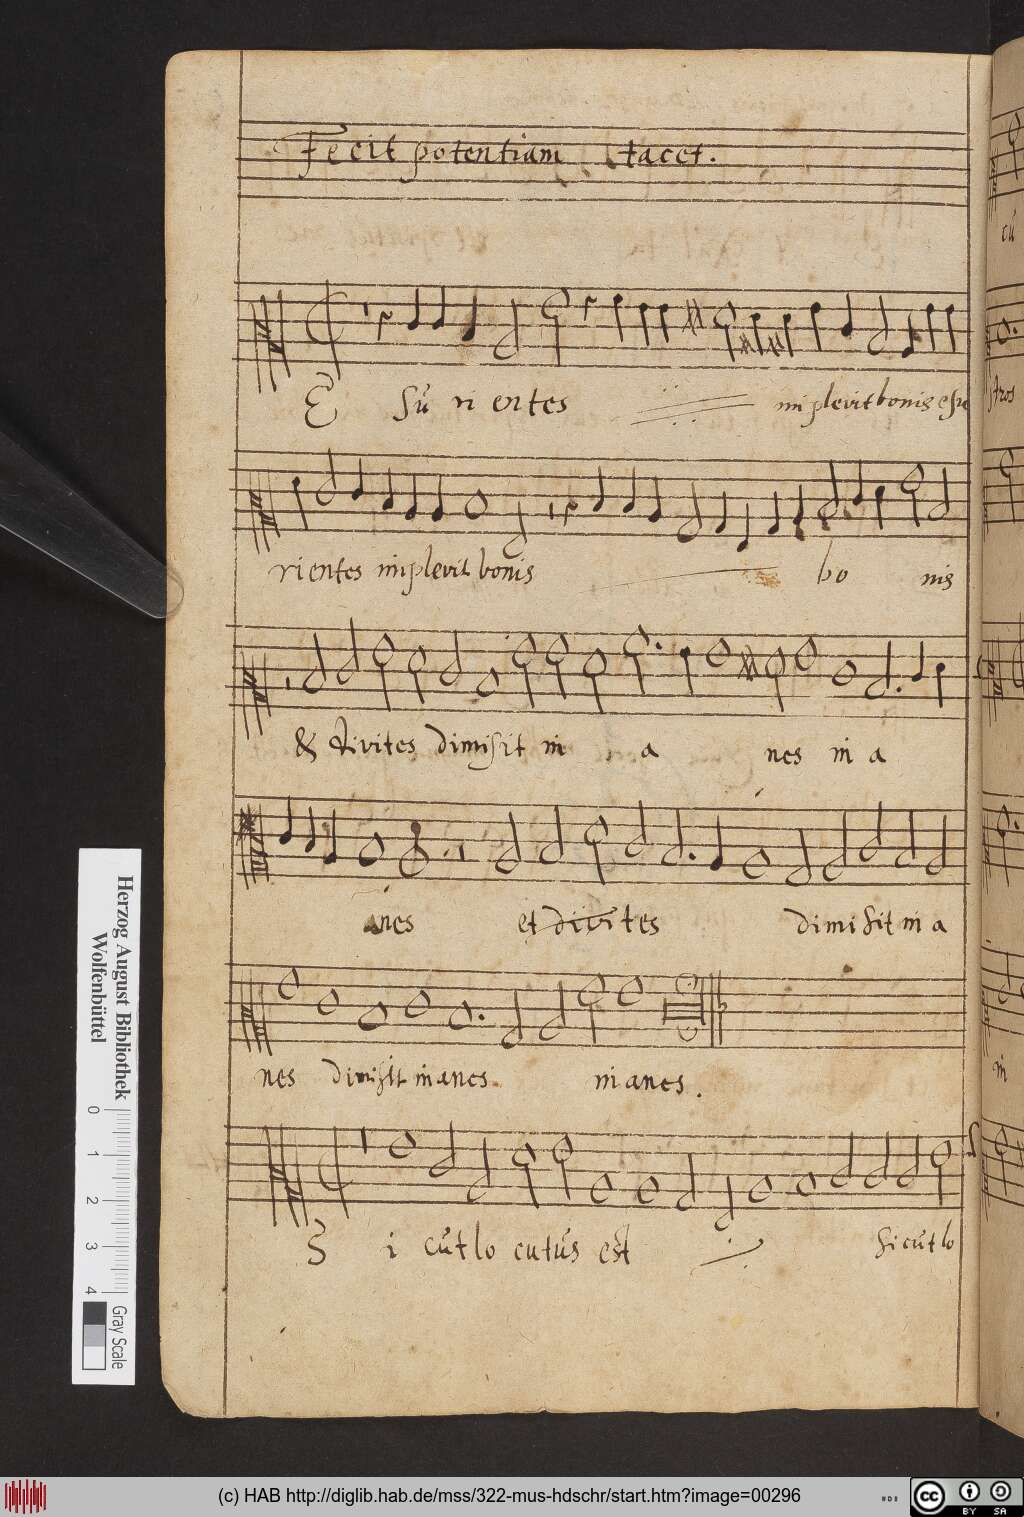 Fecit potentiam tacet.
E sú ri entes implevit bonis esu
rientes implevit bonis bo nis
& divites dimisit in a nes in a
anes et divi tes dimisit in a
nes dimisit in anes in anes.
S i cút lo cutús est si cút lo
cú
stros
in
Herzog August Bibliothek
Wolfenbüttel
0 1 2 3 4
Gray Scale
(c) HAB http://diglib.hab.de/mss/322-mus-hdschr/start.htm?image=00296
cc BY SA